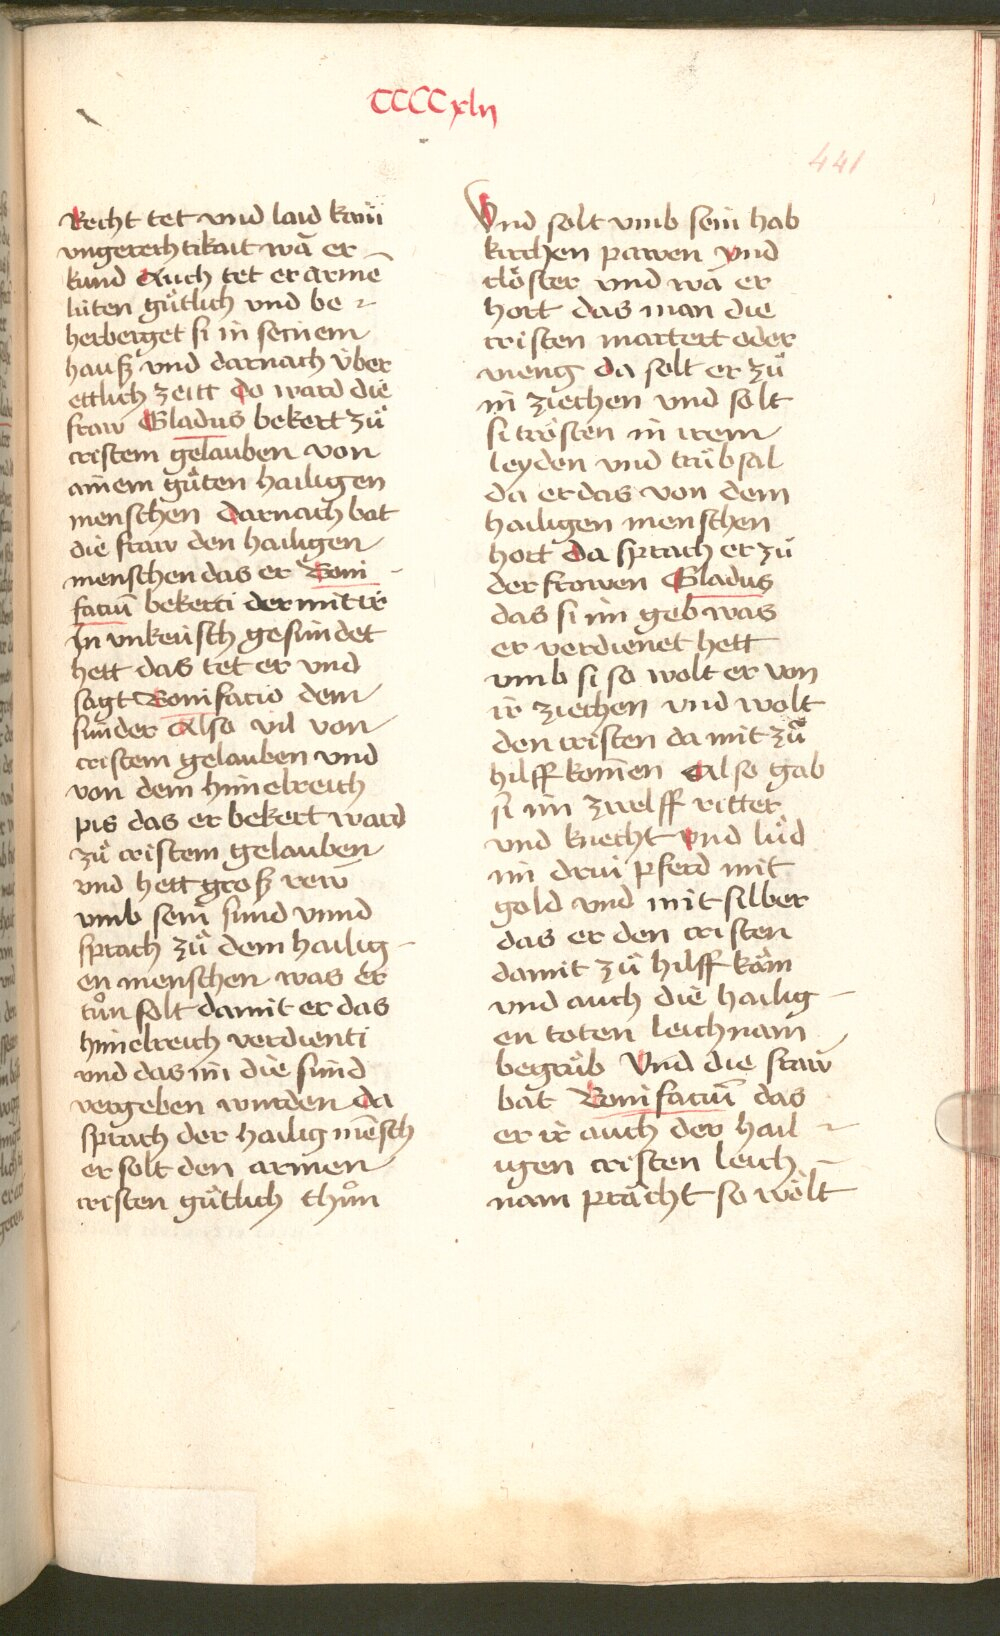 CCCCxlij
441
Recht tet vnd laid kain
vngerechtikait wā er
kund Auch tet er armē
lüten gůtlich vnd be
herberget si in seinem
hauß vnd darnach über
ettlich zeitt do ward die
fraw Gladus bekert zů
cristem gelauben von
ainem gůten hailigen
menschen darnach bat
die fraw den hailigen
menschen das er Boni
faciū bekerti der mit ir
in vnkeüsch gesündet
hett das tet er vnd
sagt Bonifacio dem
sünder Also vil von
cristem gelauben vnd
von dem himelreich
pis das er bekert ward
zů cristem gelauben
vnd hett groß rew
vmb sein sünd vnnd
sprach zů dem hailig
en menschen was er
tůn solt damit er das
himelreich verdienti
vnd das im die sünd
vergeben wurden da
sprach der hailig mēsch
er solt den armen
cristen gůtlich thůn
Vnd solt vmb sein hab
kirchen pawen vnd
clöster vnd wā er
hort das man die
cristen martert oder
vieng da solt er zů
in ziechen vnd solt
si trösten in irem
leyden vnd trübsal
da er das von dem
hailigen menschen
hort da sprach er zů
der frowen Gladus
das si im geb was
er verdienet hett
vmb si so wolt er von
ir ziechen vnd wolt
den cristen da mit zů
hilff komen Also gab
si im zwelff ritter
vnd knecht vnd lůd
im drui pferd mit
gold vnd mit silber
das er den cristen
damit zů hilff käm
vnd auch die hailig
en toten leichnam
begrůb Vnd die fraw
bat Bonifaciū das
er ir auch der hail
igen cristen leich
nam prächt so wölt